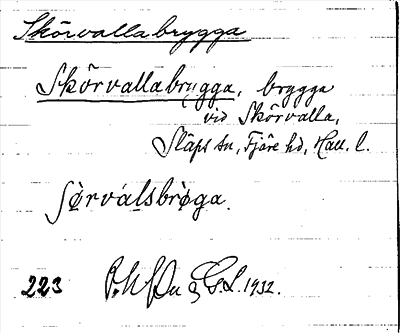 Skörvallabrygga
Skörvallabrygga, brygga
vid Skörvalla,
Släps sn, Fjäre hd, Hall. l.
ʃǿrválsbrøga.
223 G.L. 1932.